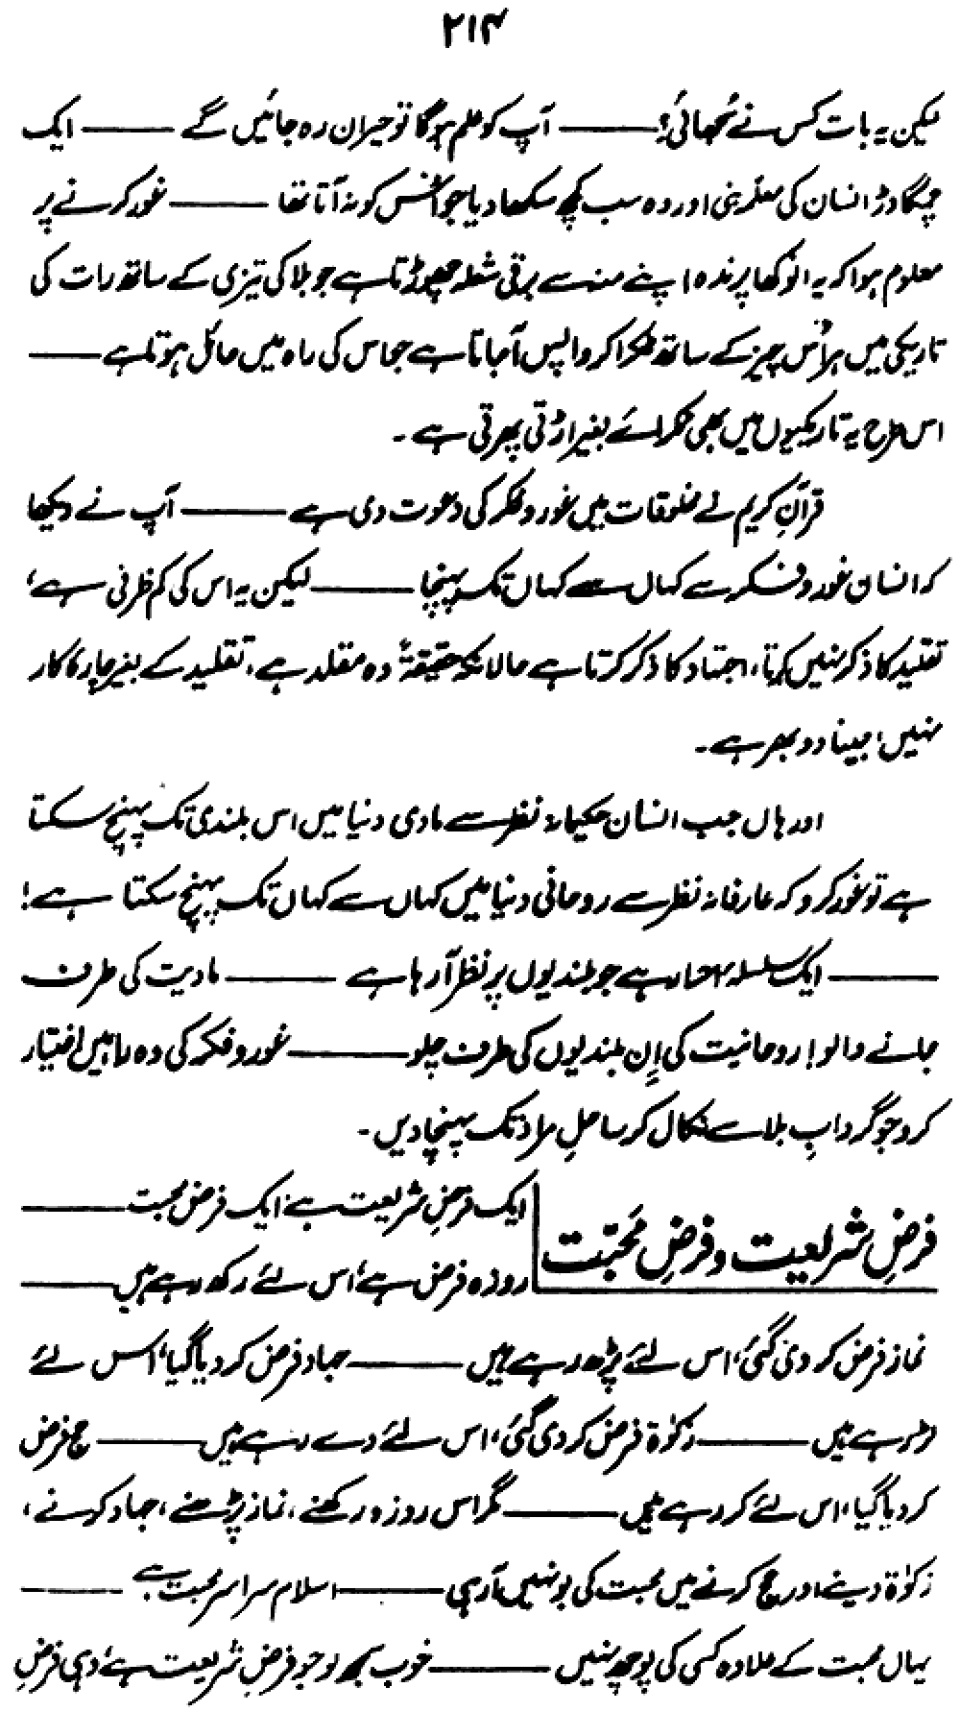 ۲۱۴
لیکن یہ بات کس نے سُجھائی؟ ——— آپ کو علم ہوگا تو حیران رہ جائیں گے ——— ایک
چمگادڑ انسان کی معلّم بنی اور وہ سب کچھ سکھا دیا جو اُس کو نہ آتا تھا ——— غور کرنے پر
معلوم ہوا کہ یہ انوکھا پرندہ اپنے منہ سے برقی شعلہ چھوڑتا ہے جو بلا کی تیزی کے ساتھ رات کی
تاریکی میں ہر اُس چیز کے ساتھ ٹکرا کر واپس آ جاتا ہے جو اس کی راہ میں حائل ہوتا ہے ———
اس طرح یہ تاریکیوں میں بھی ٹکرائے بغیر اڑتی پھرتی ہے۔
قرآنِ کریم نے مخلوقات میں غور و فکر کی دعوت دی ہے ——— آپ نے دیکھا
کہ انسان غور و فکر سے کہاں سے کہاں تک پہنچا ——— لیکن یہ اس کی کم ظرفی ہے،
تقلید کا ذکر نہیں کرتا، اجتہاد کا ذکر کرتا ہے حالانکہ حقیقۃً وہ مقلد ہے، تقلید کے بغیر چارۂ کار
نہیں، جینا دوبھر ہے۔
اور ہاں جب انسان حکیمانہ نظر سے مادی دنیا میں اس بلندی تک پہنچ سکتا
ہے تو غور کرو کہ عارفانہ نظر سے روحانی دنیا میں کہاں سے کہاں تک پہنچ سکتا ہے!
——— ایک سلسلہ انحصار ہے جو بلندیوں پر نظر آ رہا ہے ——— مادیت کی طرف
جانے والو! روحانیت کی اِن بلندیوں کی طرف چلو ——— غور و فکر کی وہ راہیں اختیار
کرو جو گردابِ بلا سے نکال کر ساحلِ مراد تک پہنچا دیں۔
فرضِ شریعت و فرضِ مَحبّت
ایک فرضِ شریعت ہے، ایک فرضِ محبت ———
روزہ فرض ہے، اس لئے رکھ رہے ہیں ———
نماز فرض کر دی گئی، اس لئے پڑھ رہے ہیں ——— جہاد فرض کر دیا گیا، اس لئے
لڑ رہے ہیں ——— زکوٰۃ فرض کر دی گئی، اس لئے دے رہے ہیں ——— حج فرض
کر دیا گیا، اس لئے کر رہے ہیں ——— مگر اس روزہ رکھنے، نماز پڑھنے، جہاد کرنے،
زکوٰۃ دینے اور حج کرنے میں محبت کی بو نہیں آ رہی ——— اسلام سراسر محبت ہے ———
یہاں محبت کے علاوہ کسی کی پوچھ نہیں ——— خوب سمجھ لو جو فرضِ شریعت ہے، وہی فرضِ